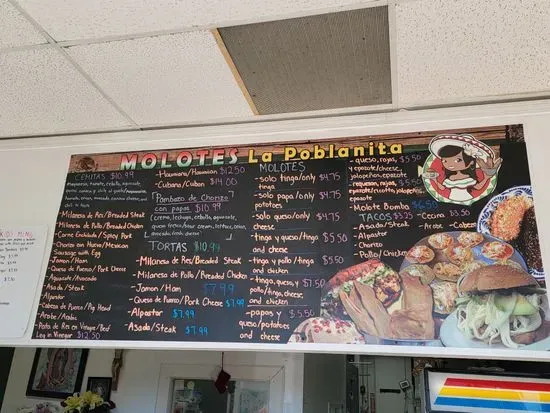 MOLOTES La Poblanita
CEMITAS $10.99
- Milanesa de Res/Breaded Steak
- Milanesa de Pollo/Breaded Chicken
- Carne Enchilada/Spicy Pork
- Chorizo en Huevo/Mexican
Sausage with Egg
- Jamon/Ham
- Queso de Puerco/Pork Cheese
- Aguacate/Avocado
- Asada/Steak
- Alpastor
- Cabeza de Puerco/Pig Head
- Arabe/Arabic
- Pata de Res en Vinagre/Beef
Leg in Vinegar $12.50
- Hawaiiana/Hawaiian $12.50
- Cubana/Cuban $14.00
Pambazo de Chorizo
con papas $10.99
(crema, lechuga, cebolla, aguacate,
queso fresco/sour cream, lettuce, onion,
avocado, fresh cheese)
TORTAS $10.99
- Milanesa de Res/Breaded Steak
- Milanesa de Pollo/Breaded Chicken
- Jamon/Ham $7.99
- Queso de Puerco/Pork Cheese $7.99
- Alpastor $7.99
- Asada/Steak $7.99
MOLOTES
- solo tinga/only $4.75
tinga
- solo papa/only $4.75
potatoes
- solo queso/only $4.75
cheese
- tinga y queso/tinga $5.50
and cheese
- tinga y pollo/tinga $5.50
and chicken
- tinga, queso y $5.50
pollo/tinga, cheese,
and chicken
- papas y $5.50
queso/potatoes
and cheese
- queso, rajas, $5.50
y epazote/cheese,
jalapeños, epazote
- requeson, rajas, $5.50
- Molote Bomba $6.50
TACOS $3.25
- Asada/Steak
- Alpastor
- Chorizo
- Pollo/Chicken
- Cecina $3.50
- Arabe
- Cabeza
$3.50